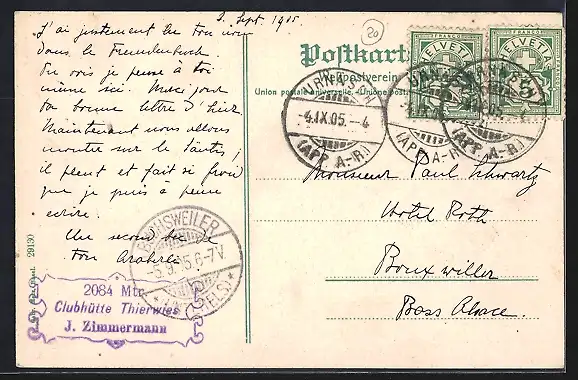 3. Sept. 1905
J'ai justement lu ton nom
dans le Fremdenbuch
Tu vois je pense à toi
même ici. Merci pour
ta bonne lettre d'hier
Maintenant nous allons
monter sur le Säntis;
il pleut et fait si froid
que je puis à peine
écrire.
Un second de
ton
20
Postkarte
Weltpostverein
Union postale universelle.
FRANCO
HELVETIA
5
FRANCO
HELVETIA
5
URNÆSCH
-4.IX.05.-4
(APP. A-R.)
URNÆSCH
(APP. A-R.)
URNÆSCH
(APP. A-R.)
Monsieur Paul Schwartz
Hotel Roth
Bouxwiller
Bass Alsace.
BUCHSWEILER
-5.9.05.6-7V.
(ELS)
29130
2084 Mtr.
Clubhütte Thierwies
J. Zimmermann